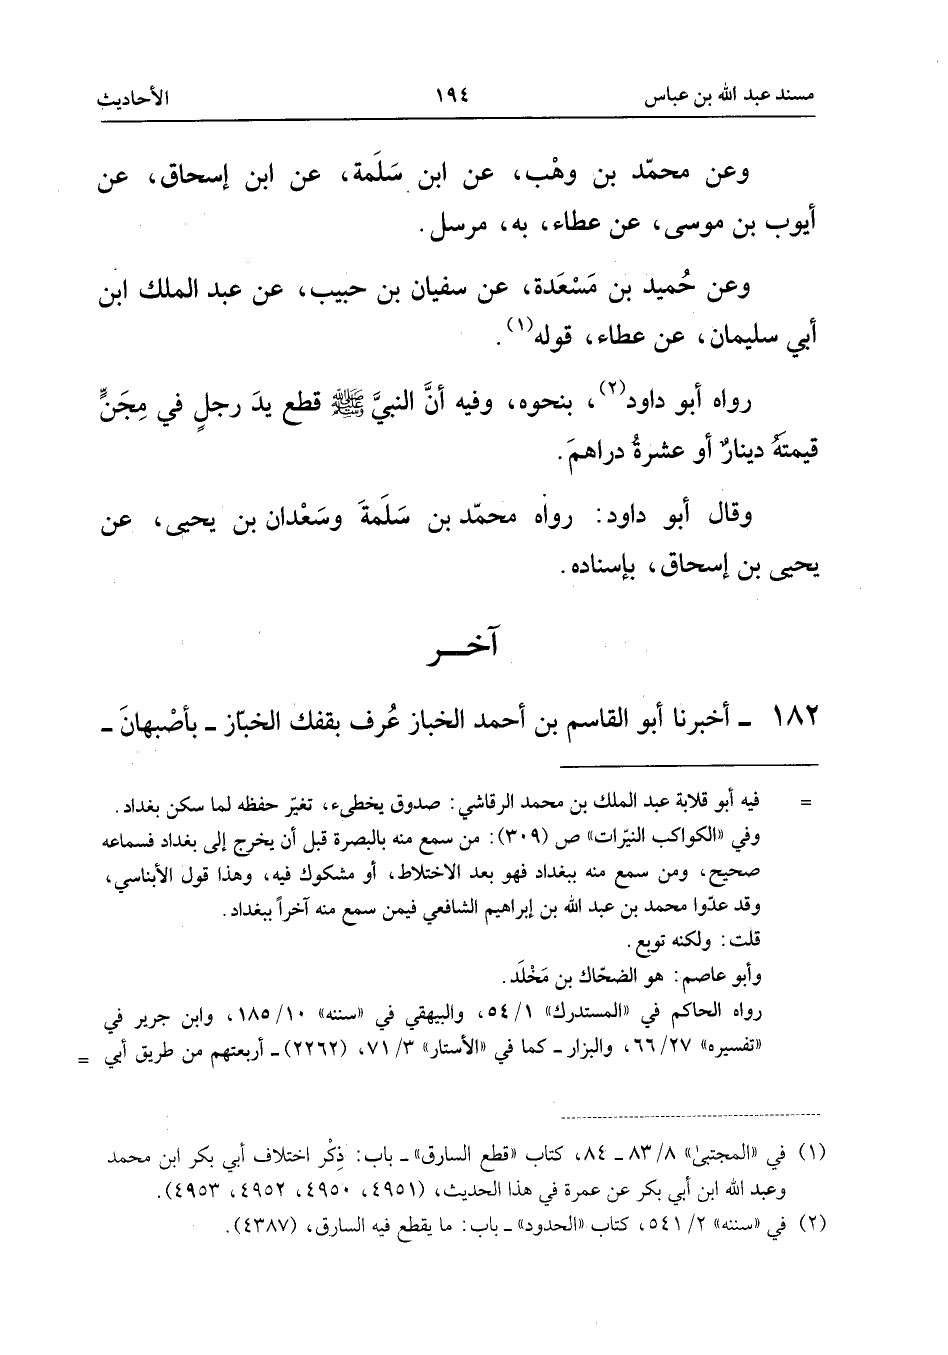 مسند عبد الله بن عباس ١٩٤ الأحاديث
وعن محمّد بن وهْب، عن ابن سَلَمة، عن ابن إسحاق، عن
أيوب بن موسى، عن عطاء، به، مرسل.
وعن حُميد بن مَسْعَدة، عن سفيان بن حبيب، عن عبد الملك ابن
أبي سليمان، عن عطاء، قوله(١).
رواه أبو داود(٢)، بنحوه، وفيه أنَّ النبيَّ ﷺ قطع يدَ رجلٍ في مِجَنٍّ
قيمتهُ دينارٌ أو عشرةُ دراهمَ.
وقال أبو داود: رواه محمّد بن سَلَمةَ وسَعْدان بن يحيى، عن
يحيى بن إسحاق، بإسناده.
آخـــر
١٨٢ ـ أخبرنا أبو القاسم بن أحمد الخباز عُرف بقفك الخبّاز ـ بأصْبهانَ ـ
= فيه أبو قلابة عبد الملك بن محمد الرقاشي: صدوق يخطىء، تغيّر حفظه لما سكن بغداد.
وفي «الكواكب النيّرات» ص (٣٠٩): من سمع منه بالبصرة قبل أن يخرج إلى بغداد فسماعه
صحيح، ومن سمع منه ببغداد فهو بعد الاختلاط، أو مشكوك فيه، وهذا قول الأبناسي،
وقد عدّوا محمد بن عبد الله بن إبراهيم الشافعي فيمن سمع منه آخراً ببغداد.
قلت: ولكنه توبع.
وأبو عاصم: هو الضحّاك بن مَخْلَد.
رواه الحاكم في «المستدرك» ١/ ٥٤، والبيهقي في «سننه» ١٠/ ١٨٥، وابن جرير في
«تفسيره» ٢٧/ ٦٦، والبزار ـ كما في «الأستار» ٣/ ٧١، (٢٢٦٢) ـ أربعتهم من طريق أبي =
(١) في «المجتبىٰ» ٨/ ٨٣ ـ ٨٤، كتاب «قطع السارق» ـ باب: ذِكْر اختلاف أبي بكر ابن محمد
وعبد الله ابن أبي بكر عن عمرة في هذا الحديث، (٤٩٥١، ٤٩٥٠، ٤٩٥٢، ٤٩٥٣).
(٢) في «سننه» ٢/ ٥٤١، كتاب «الحدود» ـ باب: ما يقطع فيه السارق، (٤٣٨٧).